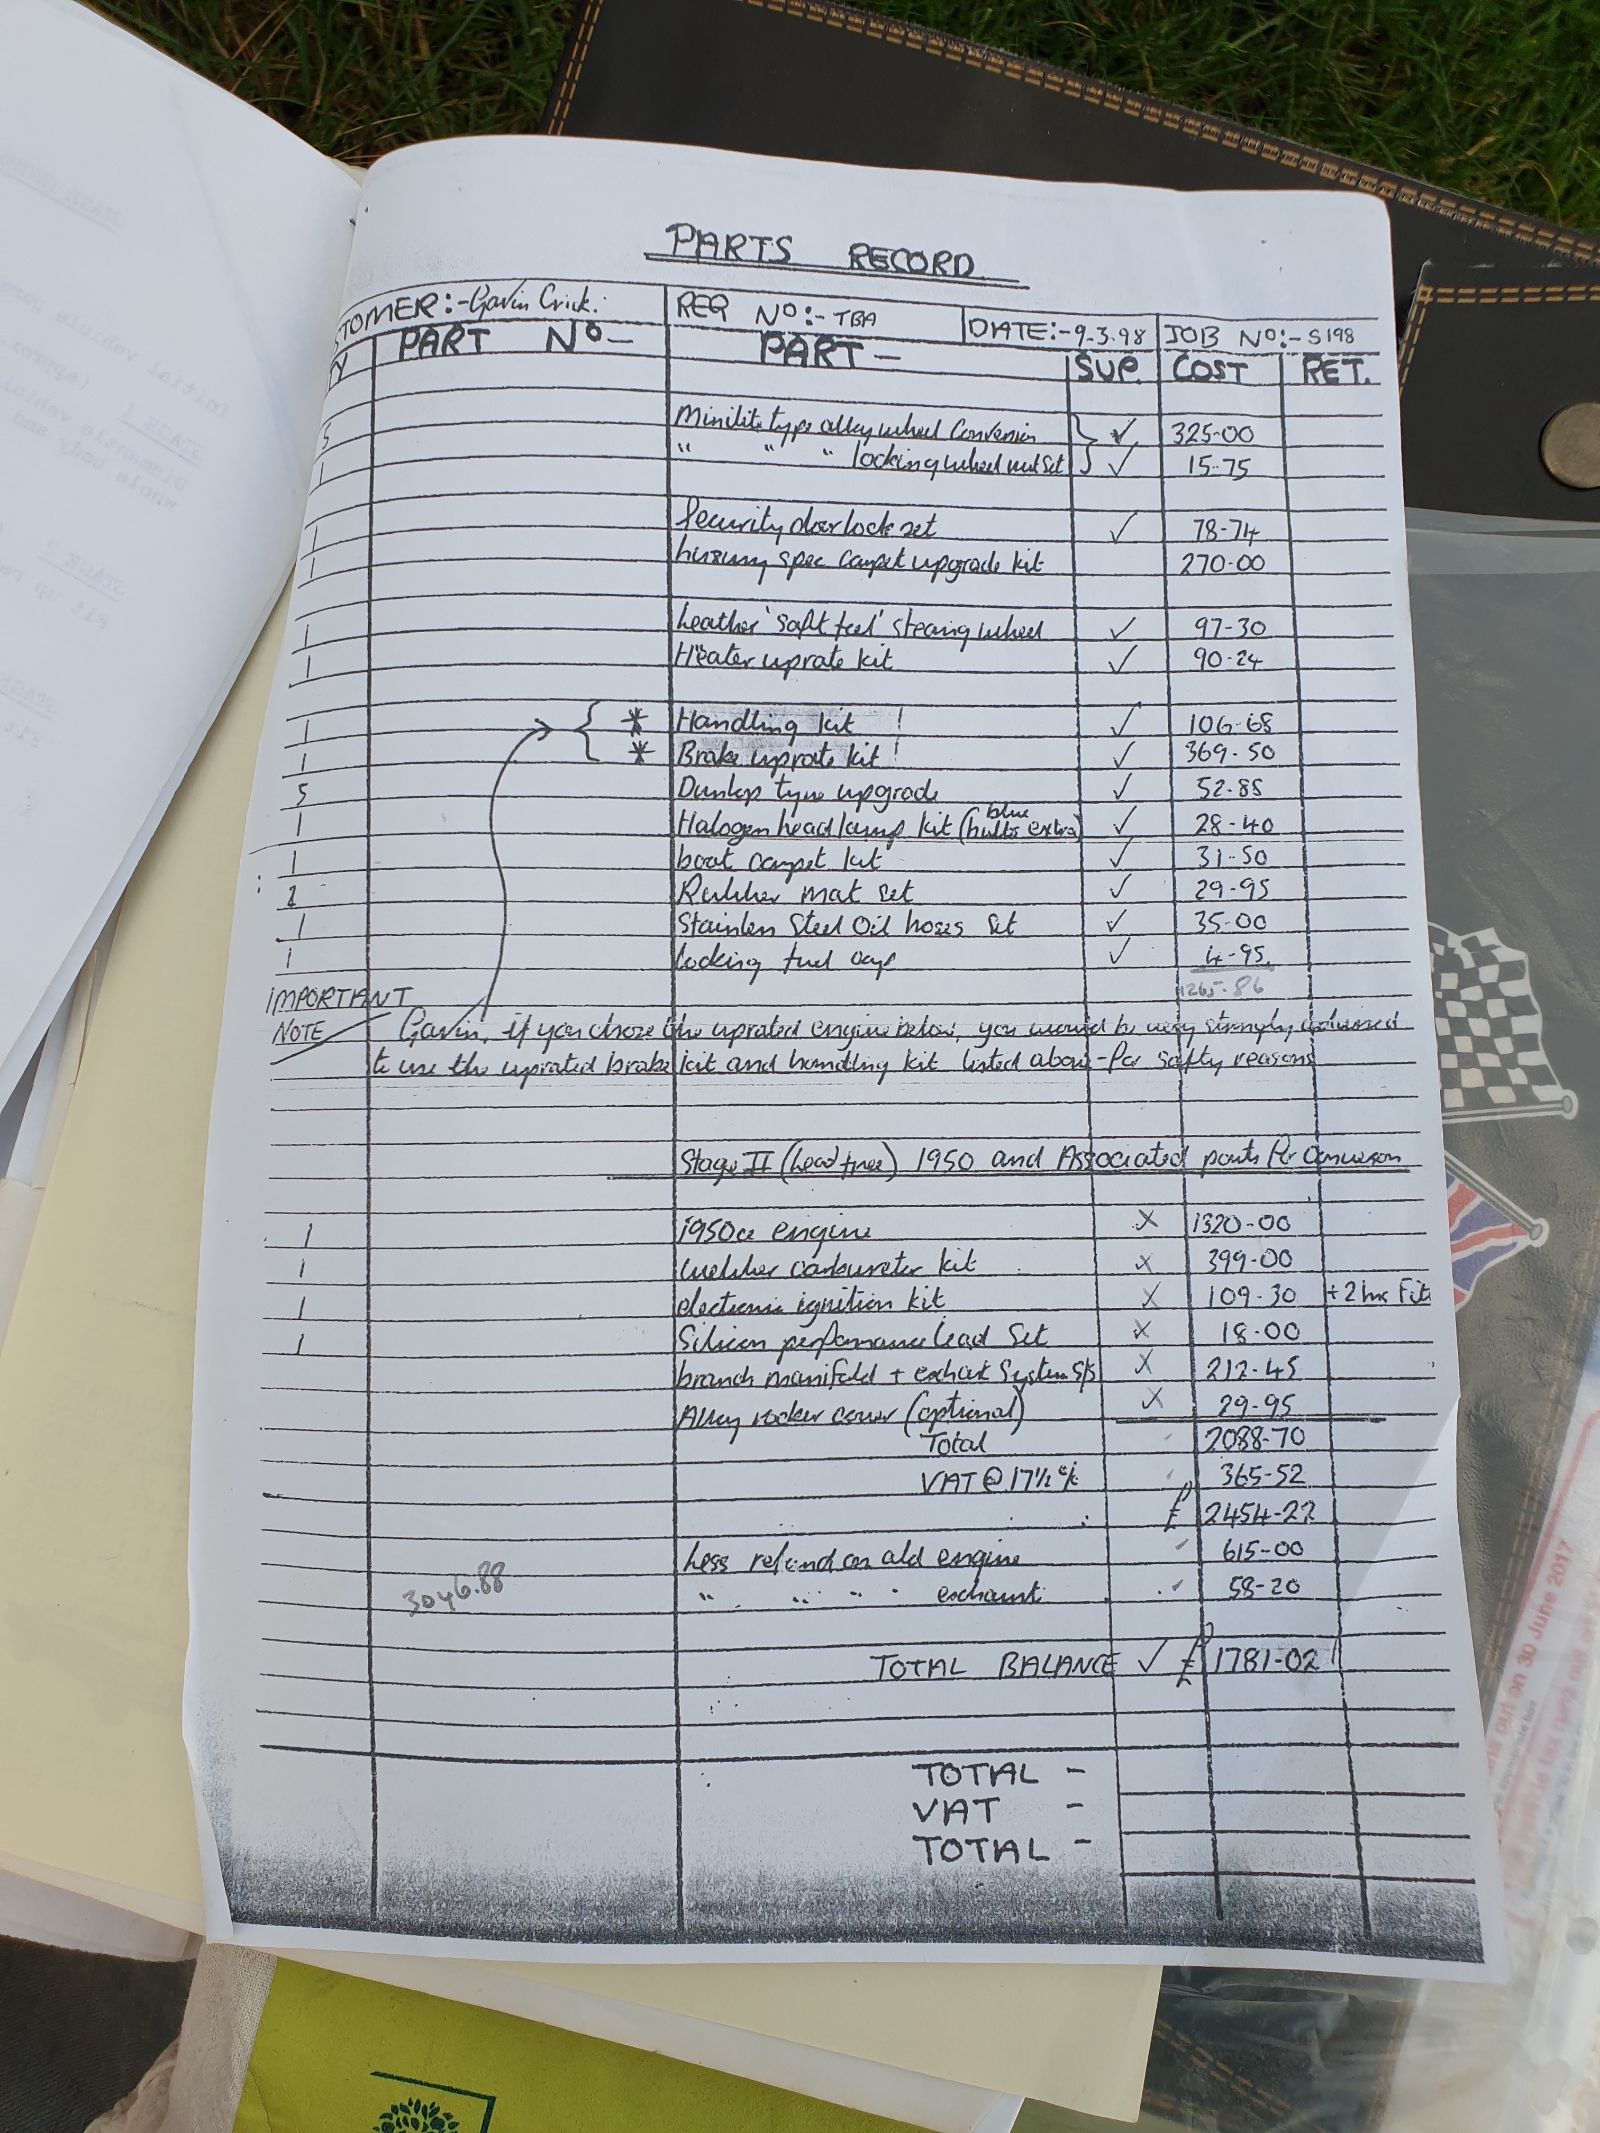 PARTS RECORD
STOMER:- Gavin Crick. REG Nº:- TBA DATE:- 9.3.98 JOB Nº:- S198
TY PART Nº- PART - SUP. COST RET.
5 Minilite type alloy wheel Conversion ✓ 325-00
1 " " " locking wheel nut Set ✓ 15-75
1 Security door lock set ✓ 78-74
1 luxury spec carpet upgrade kit 270-00
1 leather 'soft feel' steering wheel ✓ 97-30
1 Heater uprate kit ✓ 90-24
1 * Handling kit ! ✓ 106-68
1 * Brake uprate kit ! ✓ 369-50
5 Dunlop tyre upgrade ✓ 52-85
1 Halogen headlamp kit (blue bulbs extra) ✓ 28-40
1 boot carpet kit ✓ 31-50
2 Rubber mat set ✓ 29-95
1 Stainless Steel Oil hoses set ✓ 35-00
1 locking fuel cap ✓ 4-95.
1265.86
IMPORTANT
NOTE Gavin, if you chose the uprated engine below, you would be very strongly advised
to use the uprated brake kit and handling kit listed above - for safty reasons
Stage II (lead free) 1950 and Associated parts for conversion
1 1950cc engine X 1320-00
1 webber carburetor kit X 399-00
1 electronic ignition kit X 109-30 + 2 hrs Fit
1 Silicon performance lead Set X 18-00
branch manifold + exhaust System S/S X 212-45
Alloy rocker cover (optional) X 29-95
Total 2088-70
VAT @ 17½ % 365-52
£ 2454-22
less refund on old engine 615-00
3046.88 " " " " exhaust 58-20
TOTAL BALANCE ✓ £ 1781-02
TOTAL -
VAT -
TOTAL -
out on 30 June 2017